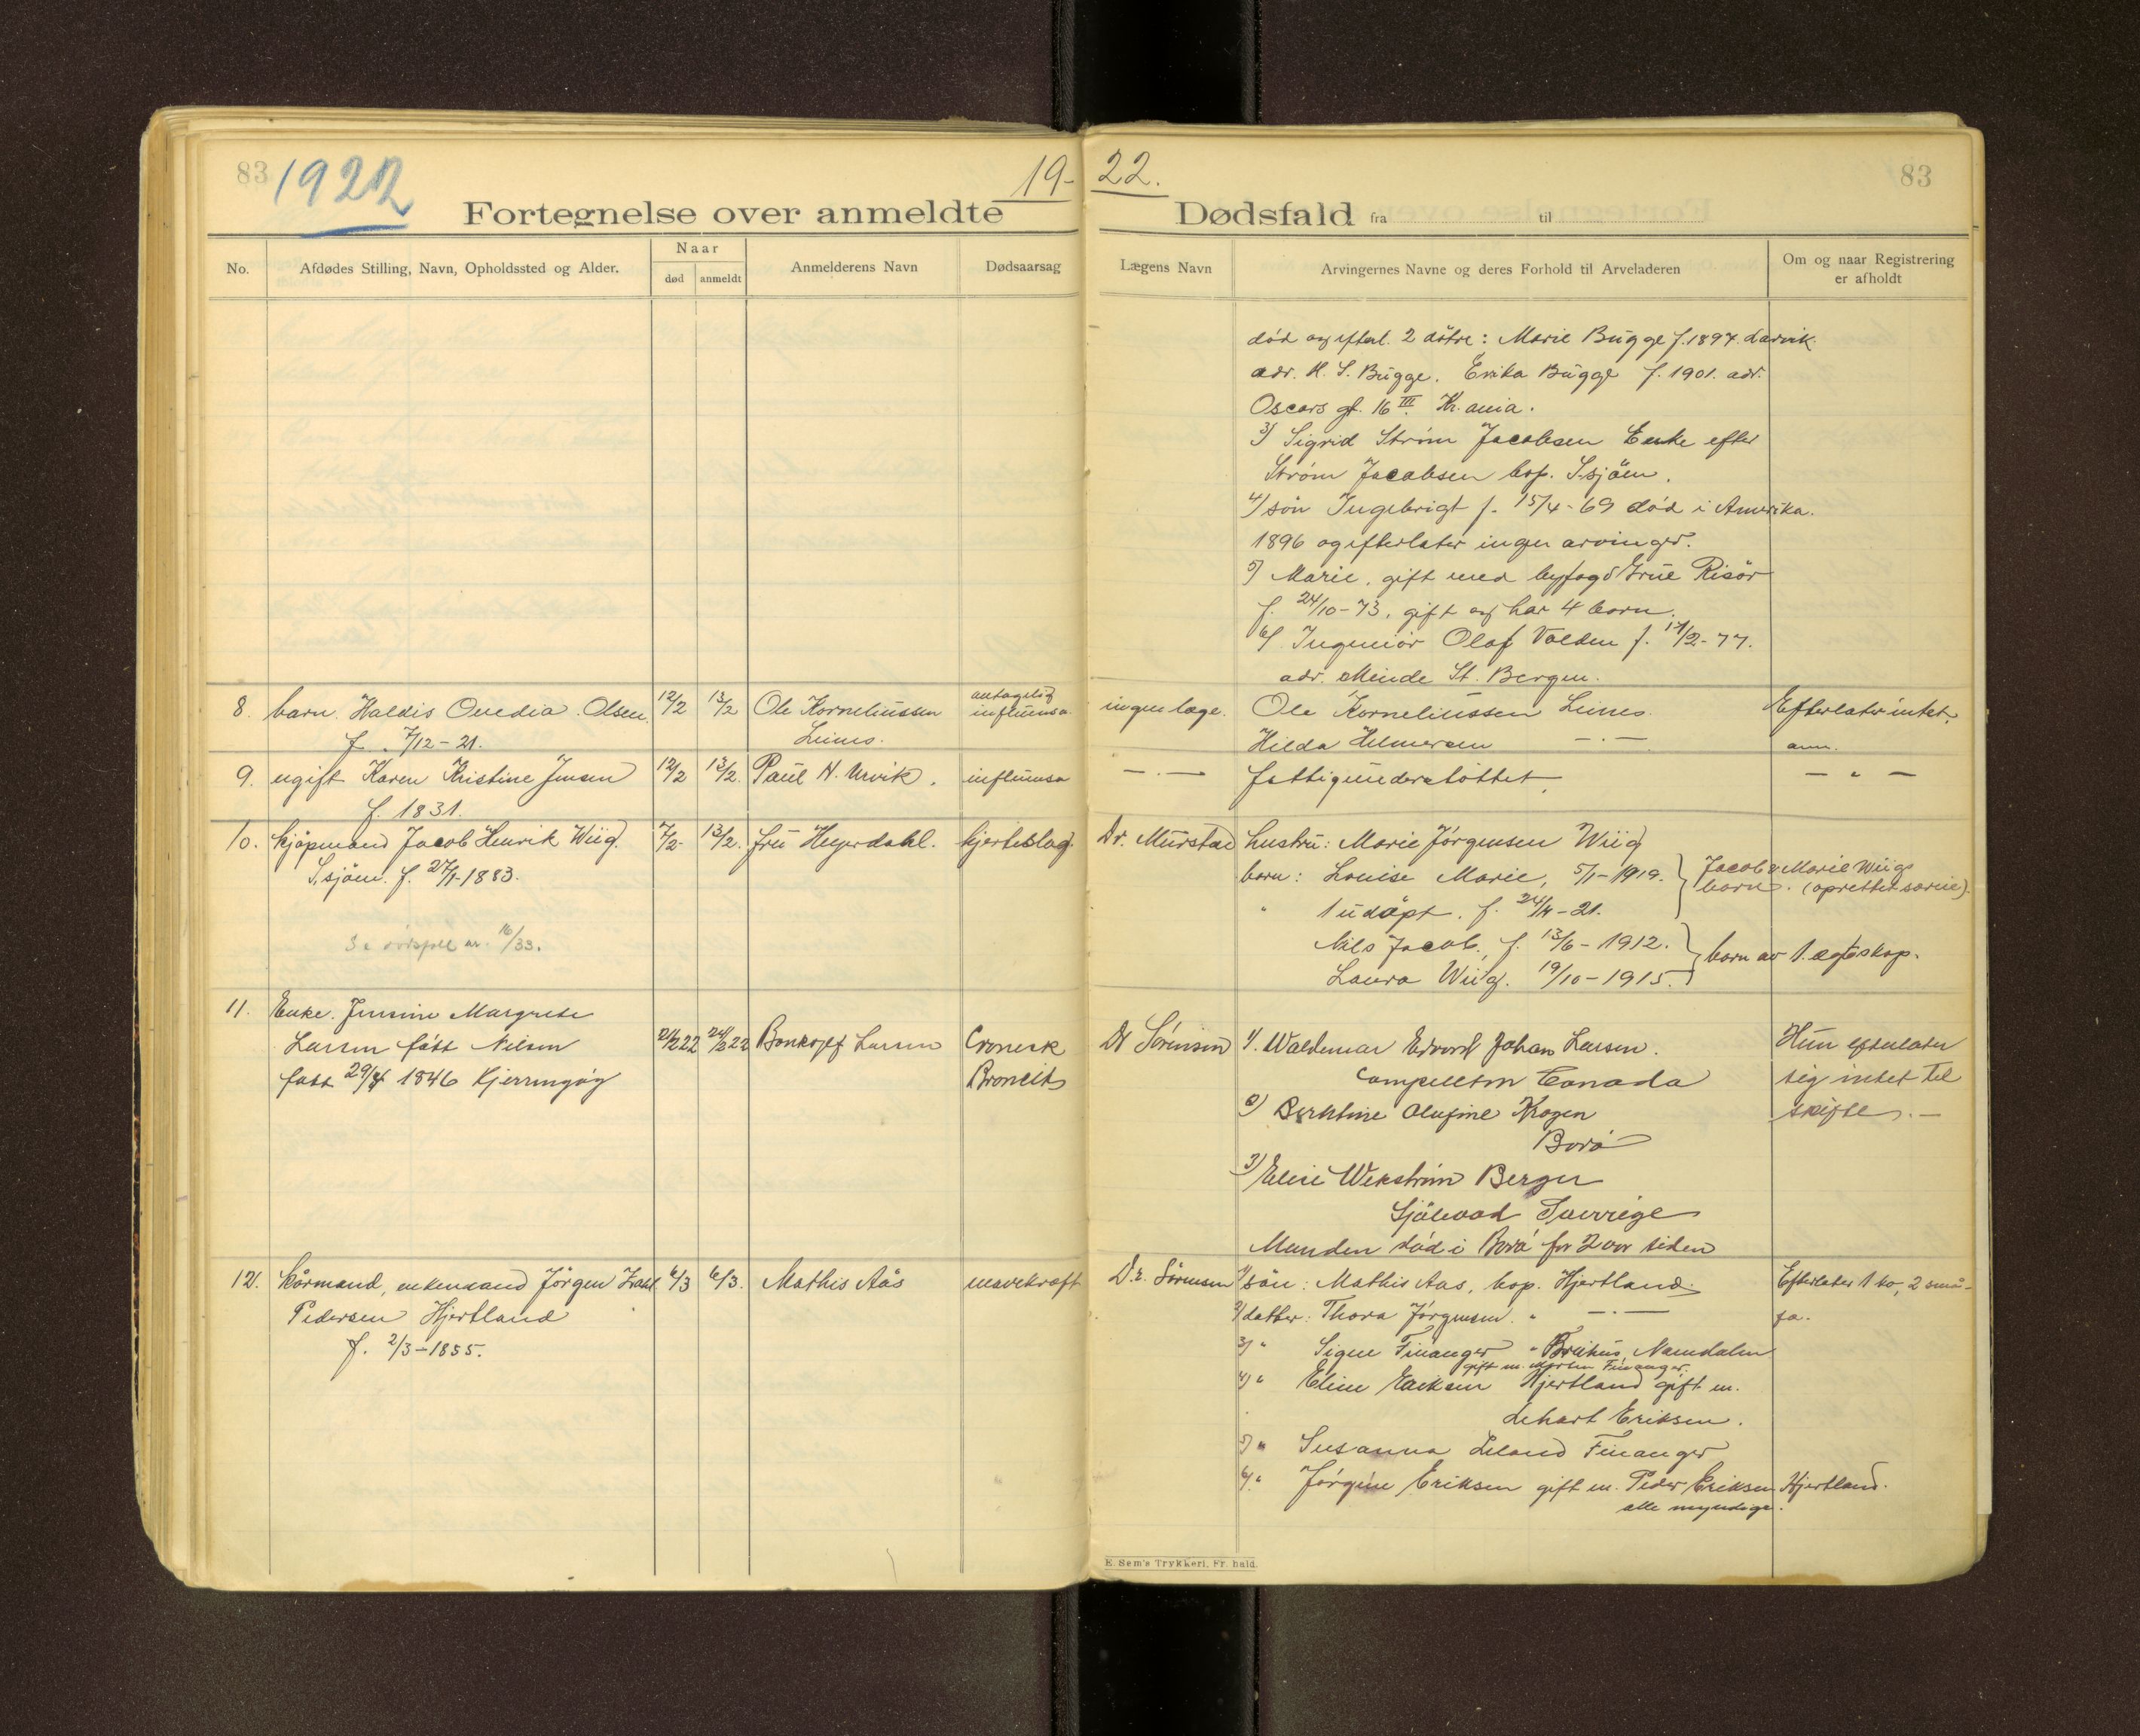 83 1922 19- 22. 83
Fortegnelse over anmeldte Dødsfald fra til
No. Afdødes Stilling, Navn, Opholdssted og Alder. Naar død anmeldt Anmelderens Navn Dødsaarsag Lægens Navn Arvingernes Navne og deres Forhold til Arveladeren Om og naar Registrering er afholdt
død og efterl. 2 døtre: Marie Bugge f. 1897. Larvik
adr. H. S. Bugge. Erika Bugge f. 1901. adr.
Oscars gt. 16 III. Kr.ania.
3) Sigrid Strøm Jacobsen Enke efter
Strøm Jacobsen bop. S.sjøen.
4) søn Ingebrigt f. 15/4-69 død i Amerika.
1896 og efterlater ingen arvinger.
5) Marie, gift med byfogd Grue Risør
f. 24/10-73, gift og har 4 barn.
6) Ingeniør Olaf Volden f. 17/2-77.
adr. Minde St. Bergen.
8. barn. Haldis Ovedia Olsen. 12/2 13/2 Ole Korneliussen antagelig influensa ingen læge. Ole Korneliussen Leines. Efterlater intet.
f. 7/12-21. Leines. Hilda Helmersen -.-
9. ugift Karen Kristine Jensen 12/2 13/2. Paul N. Urvik. influensa -.- fattigunderstøttet. - " -
f. 1831.
10. Kjøpmand Jacob Henrik Wiig. 7/2- 13/2. fru Heyerdahl. hjerteslag. Dr. Murstad hustru: Marie Jørgensen Wiig
S.sjøen. f. 27/1-1883. barn: Louise Marie, 5/1-1919. Jacob & Marie Wiigs barn. (oprettet særeie).
" 1 udøpt. f. 24/4-21.
Se dødsfall nr. 16/33. Nils Jacob, f. 13/6-1912. barn av 1. ægteskap.
Laura Wiig. 19/10-1915.
11. Enke. Jensine Margrete
Larsen født Nilsen 24/2 22 Larsen Cronisk Dr Sørensen 1). Waldemar Edvard Johan Larsen. Hun efterlater
født 1846 Kjerringøy Broncit Canada sig intet til
2) Olufine Krogen skifte. -
Bodø
3) Elise Wekstrøm Berger
Sverrige
Manden død i Bodø for 2 aar siden
12. Kårmand, enkemand Jörgen Zahl 4/3 6/3. Mathis Aås mavekræft Dr. Sörensen 1) søn: Mathis Aas, bop. Hjertland. Efterlater 1 ko, 2 små-
Pedersen Hjertland 2) datter: Thora Jörgensen. " -.- fa.
f. 2/3-1855. 3) " Signe Finanger " Namdalen
gift m. Morten Finanger.
4) " Eline Eriksen Hjertland gift m.
Lehart Eriksen.
5) " Susanna Leland Finanger
6) " Jørgine Eriksen gift m. Peder Eriksen Hjertland.
alle myndige.
E. Sem's Trykkeri, Fr. hald.